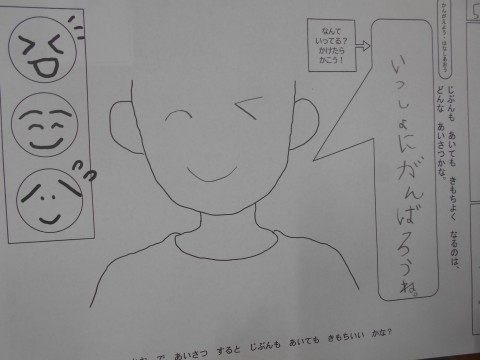 からがえよう・はなしあおう
じぶんも あいても きもちよく なるのは、
どんな あいさつかな。
なんて
いってる？
かけたら
かこう！
いっしょにがんばろうね。
で あいさつ すると じぶんも あいても きもちいい かな？